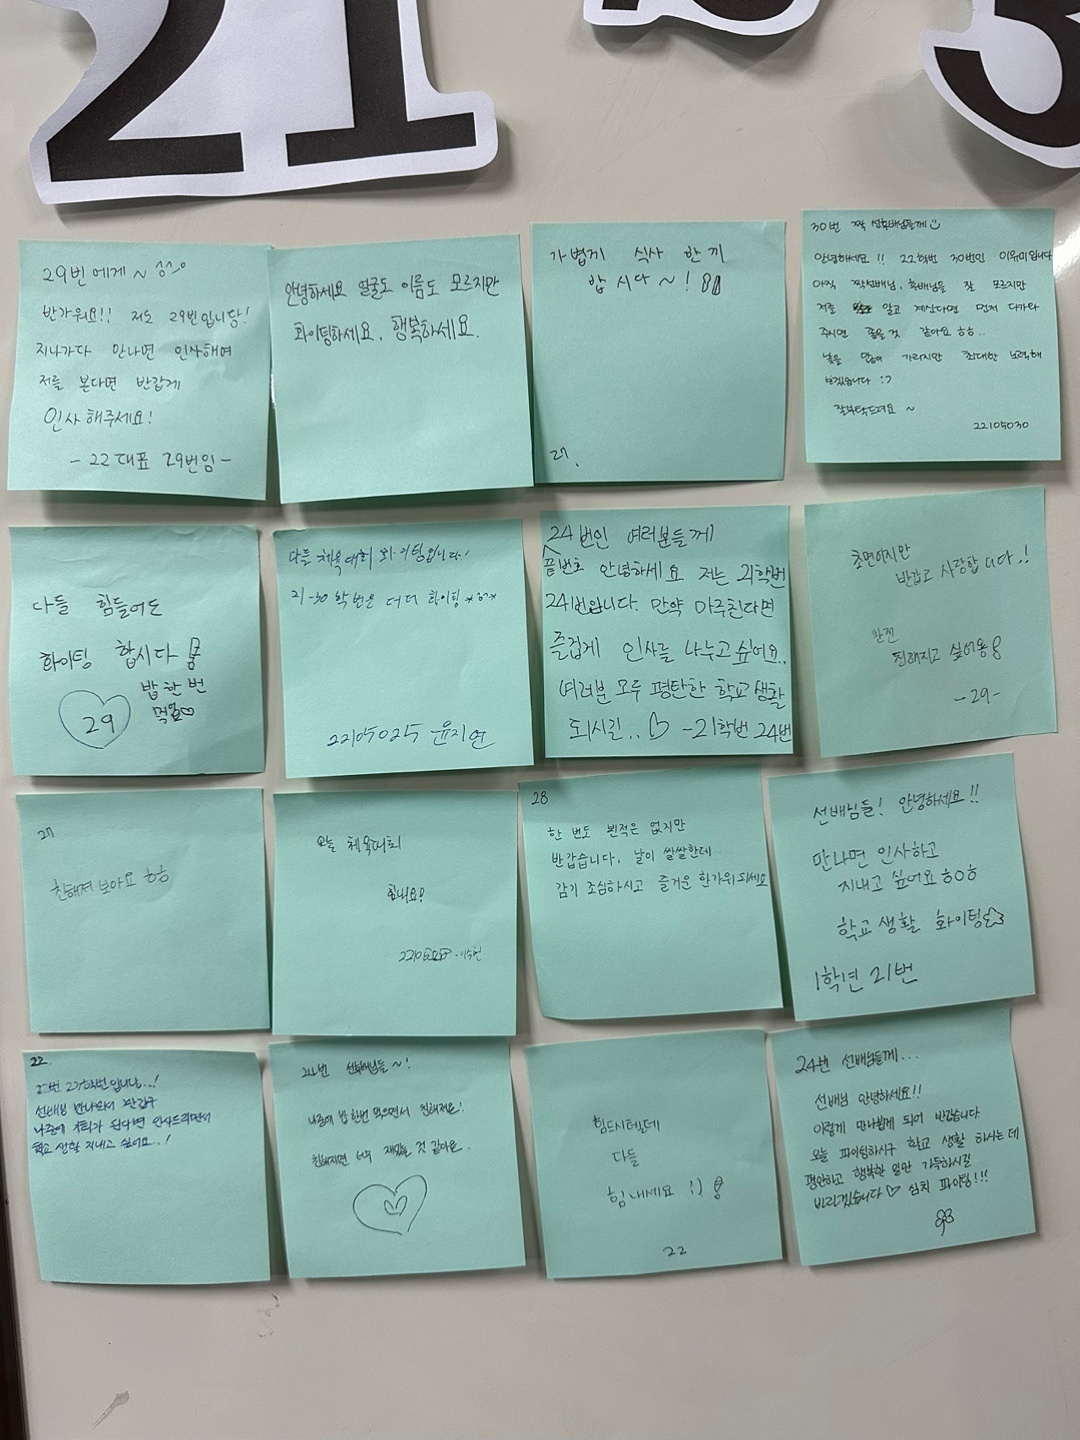 21
3
29번에게~
반가워요!! 저도 29번입니당!
지나가다 만나면 인사해여
저를 본다면 반갑게
인사해주세요!
- 22 대표 29번임 -
안녕하세요 얼굴도 이름도 모르지만
화이팅하세요. 행복하세요.
가볍게 식사 한 끼
밥 시다~!
27.
30번 짝 선후배님들께
안녕하세요!! 22학번 30번인 이유미입니다
아직 짝선배님, 후배님을 잘 모르지만
저를 알고 계신다면 먼저 다가와
주시면 좋을것 같아요 ㅎㅎ..
낯을 많이 가리지만 최대한 노력해
보겠습니다 :)
잘부탁드려요 ~
22105030
다들 힘들어도
화이팅 합시다
밥 한 번
먹어요
29
다들 체육대회 화이팅입니다!
21-30 학번은 더더 화이팅
22105025 윤지연
24번인 여러분들께
끝번호 안녕하세요 저는 21학번
24번입니다. 만약 마주친다면
즐겁게 인사를 나누고 싶어요..
여러분 모두 평탄한 학교생활
되시길.. -21학번 24번
초면이지만
반갑고 사랑합니다.!
완전
친해지고 싶어용
-29-
27
친해져 보아요 ㅎㅎ
오늘 체육대회
힘내요!
28
한 번도 뵌적은 없지만
반갑습니다. 날이 쌀쌀한데
감기 조심하시고 즐거운 한가위 되세요
선배님들! 안녕하세요!!
만나면 인사하고
지내고 싶어요 ㅎㅇㅎ
학교 생활 화이팅
1학년 21번
22.
22번 학번입니다..!
선배님 만나뵈서 반갑구
나중에 기회가 된다면 인사드리면서
학교 생활 지내고 싶어요.!
24번 선후배님들~!
나중에 밥 한번 먹으면서 친해져요!
친해지면 너무 재밌을 것 같아요.
힘드시텐데
다들
힘내세요 :)
22
24번 선배님들께...
선배님 안녕하세요!!
이렇게 만나뵙게 되어 반갑습니다
오늘 화이팅하시구 학교 생활 하시는데
평안하고 행복한 일만 가득하시길
바라겠습니다 심치 파이팅!!!